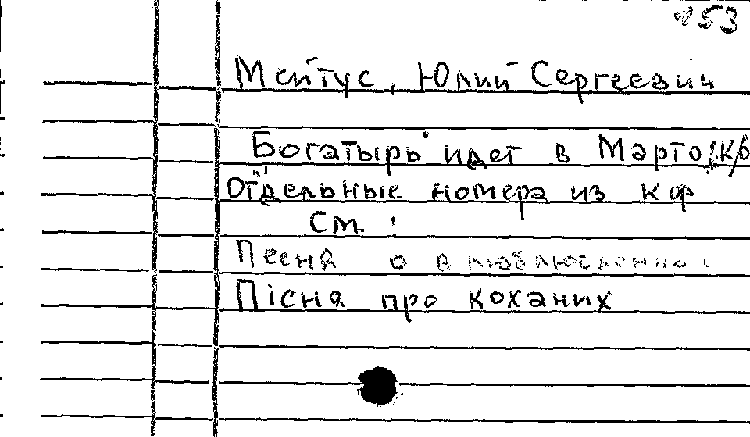 153
Мейтус, Юлий Сергеевич
Богатырь идет в Марто/к/ф
Отдельные номера из к/ф
См:
Песня о влюбленных
Пісня про коханих